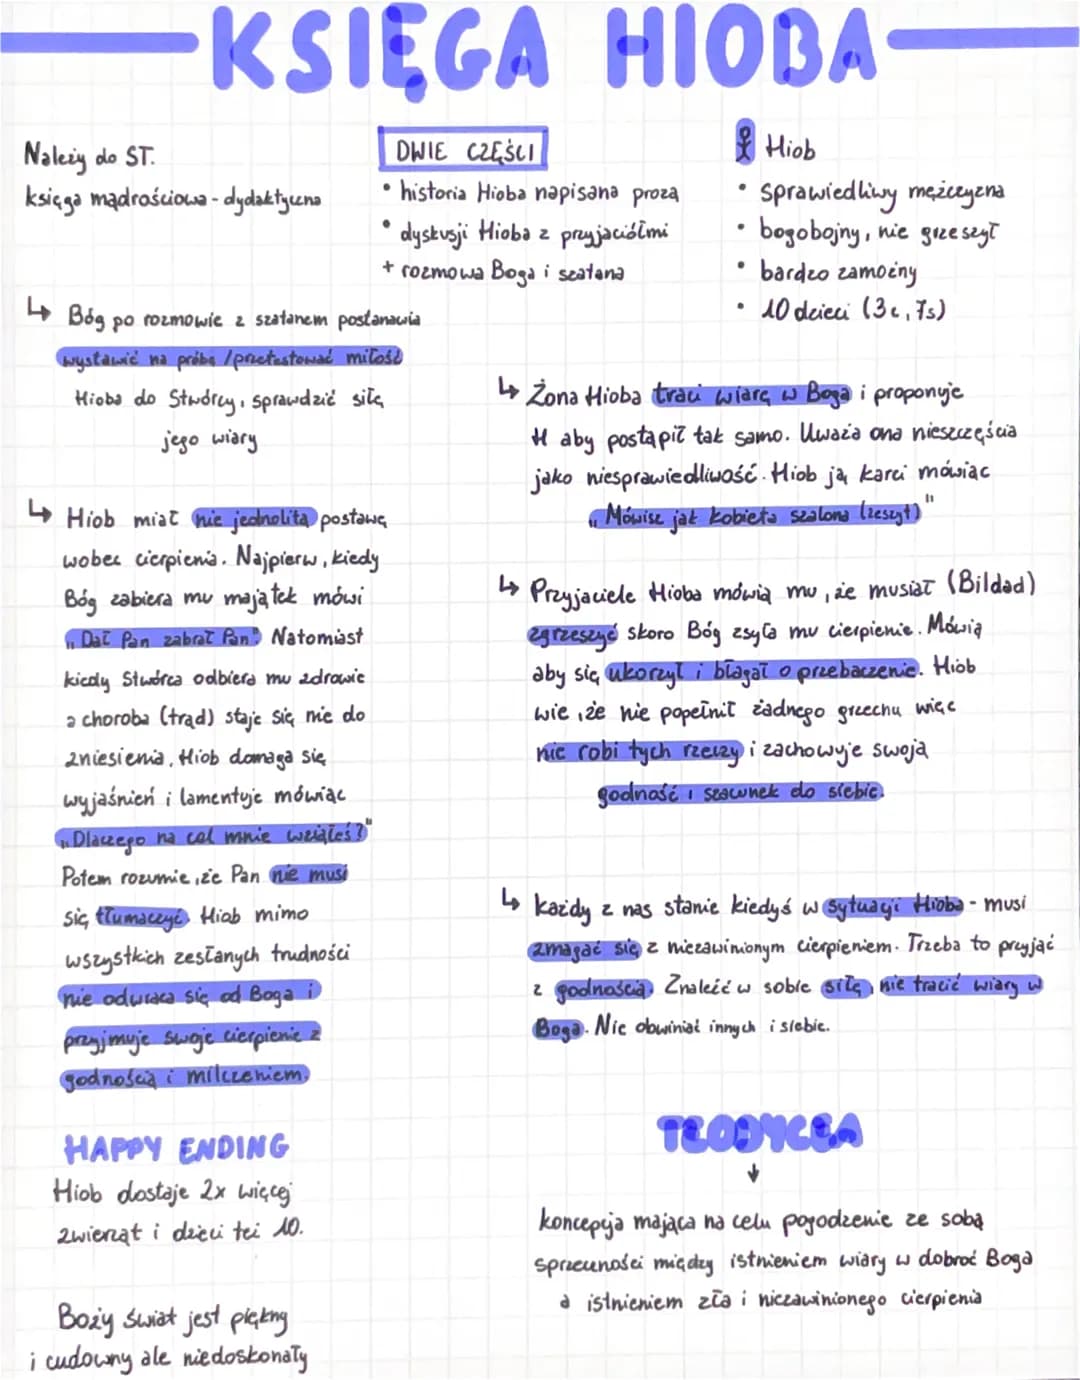 KSIĘGA HIOBA
Należy do ST.
księga mądrościowa - dydaktyczna
DWIE CZĘŚCI
• historia Hioba napisana prozą
• dyskusji Hioba z przyjaciółmi
+ rozmowa Boga i szatana
Hiob
• sprawiedliwy mężczyzna
• bogobojny, nie grzeszył
• bardzo zamożny
• 10 dzieci (3c, 7s)
↳ Bóg po rozmowie z szatanem postanawia
wystawić na próbę / przetestować miłość
Hioba do Stwórcy, sprawdzić siłę
jego wiary
↳ Hiob miał nie jednolitą postawę
wobec cierpienia. Najpierw, kiedy
Bóg zabiera mu majątek mówi
„Dał Pan zabrał Pan" Natomiast
kiedy Stwórca odbiera mu zdrowie
a choroba (trąd) staje się nie do
zniesienia, Hiob domaga się
wyjaśnień i lamentuje mówiąc
„Dlaczego na cel mnie wziąłeś?"
Potem rozumie, że Pan nie musi
się tłumaczyć. Hiob mimo
wszystkich zesłanych trudności
nie odwraca się od Boga i
przyjmuje swoje cierpienie z
godnością i milczeniem.
HAPPY ENDING
Hiob dostaje 2x więcej
zwierząt i dzieci też 10.
Boży świat jest piękny
i cudowny ale niedoskonały
↳ Żona Hioba traci wiarę w Boga i proponuje
H aby postąpił tak samo. Uważa ona nieszczęścia
jako niesprawiedliwość. Hiob ją karci mówiąc
„Mówisz jak kobieta szalona (zeszyt)"
↳ Przyjaciele Hioba mówią mu, że musiał (Bildad)
zgrzeszyć skoro Bóg zsyła mu cierpienie. Mówią
aby się ukorzył i błagał o przebaczenie. Hiob
wie, że nie popełnił żadnego grzechu więc
nie robi tych rzeczy i zachowuje swoją
godność i szacunek do siebie.
↳ Każdy z nas stanie kiedyś w sytuacji Hioba - musi
zmagać się z niezawinionym cierpieniem. Trzeba to przyjąć
z godnością. Znaleźć w sobie siłę, nie tracić wiary w
Boga. Nie obwiniać innych i siebie.
TEODYCEA
↓
koncepcja mająca na celu pogodzenie ze sobą
sprzeczności między istnieniem wiary w dobroć Boga
a istnieniem zła i niezawinionego cierpienia